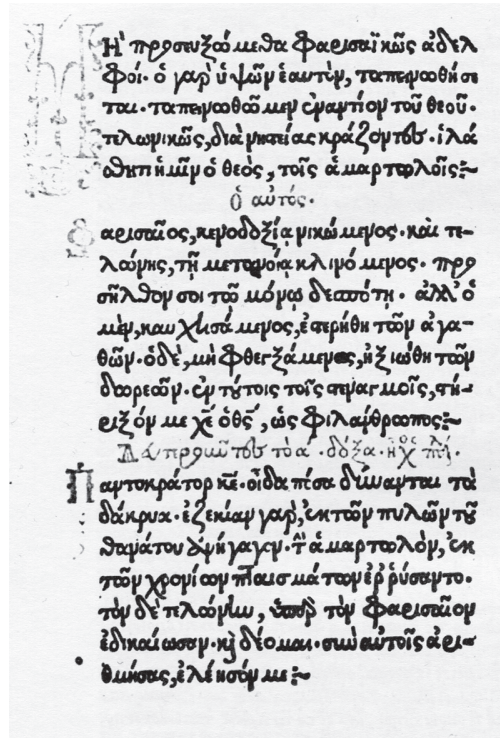 Μὴ προσευξώμεθα φαρισαϊκῶς ἀδελ
φοί· ὁ γαρ ὑψῶν ἑαυτὸν, ταπεινωθήσε
ται· ταπεινωθῶμεν ἐναντίον τοῦ θεοῦ·
τελωνικῶς, διὰ νηστείας κράζοντες· ἱλά
σθητι ἡμῖν ὁ θεὸς, τοῖς ἁμαρτωλοῖς:~
ὁ αὐτός.
Φαρισαῖος, κενοδοξίᾳ νικώμενος· καὶ τε-
λώνης, τῇ μετανοίᾳ κλινόμενος· προ
σῆλθον σοι τῶ μόνῳ δεσπότη· ἀλλ' ὁ
μὲν, καυχησάμενος, ἐστερήθη τῶν ἀγα-
θῶν· ὁ δὲ, μὴ φθεγξάμενος, ἠξιώθη τῶν
δωρεῶν· ἐν τούτοις τοῖς στεναγμοῖς, στή-
ριξόν με χε ὁ θς, ὡς φιλάνθρωπος:~
τὸ α· δόξα· ἦχος
Παντοκράτορ κε· οἶδα πόσα δύνανται τὰ
δάκρυα· ἐζεκίαν γὰρ, ἐκ τῶν πυλῶν τοῦ
θανάτου ἀνήγαγον· τὴν ἁμαρτωλὸν, ἐκ
τῶν χρονίων πταισμάτων ἐρρύσαντο·
τὸν δὲ τελώνην, ὑπὲρ τὸν φαρισαῖον
ἐδικαίωσαν· καὶ δέομαι· σὺν αὐτοῖς ἀρι-
θμήσας, ἐλέησόν με:~